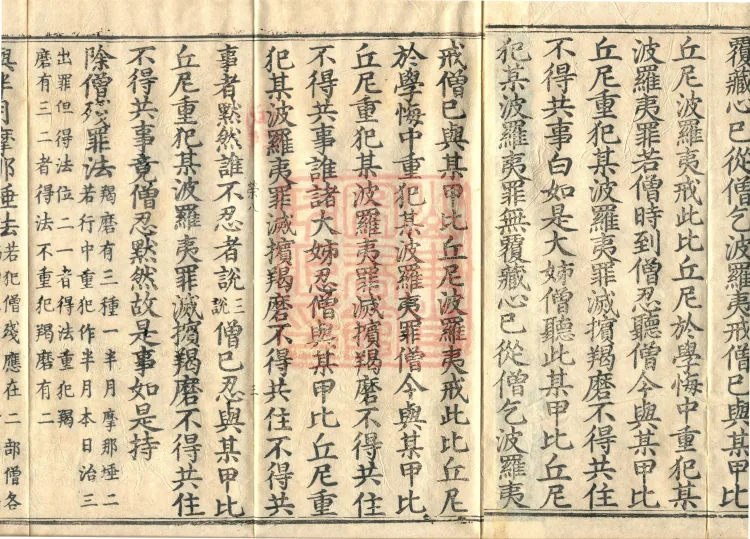 覆藏從僧乞波羅夷戒僧已與某
丘尼波羅夷戒此比丘尼於學悔中重犯某
波羅夷罪若僧時到僧忍聽僧今與某甲比
丘尼重犯某波羅夷罪滅擯羯磨不得共住
不得共事白如是大姊僧聽此某甲比丘尼
犯某波羅夷罪無覆藏心已從僧乞波羅夷
戒僧已與某甲比丘尼波羅夷戒此比丘尼
於學悔中重犯某波羅夷罪僧今與某甲比
丘尼重犯某波羅夷罪滅擯羯磨不得共住
不得共事誰諸大姊忍僧與某甲比丘尼重
犯某波羅夷罪滅擯羯磨不得共住不得共
三
事者默然誰不忍者說三說僧已忍與某甲比
丘尼重犯某波羅夷罪滅擯羯磨不得共住
不得共事竟僧忍默然故是事如是持
除僧殘罪法羯磨有三種一半月摩那埵二
若行中重犯作半月本日治三
出罪但得法位二一者得法重犯羯
磨有三二者得法不重犯羯磨有二
與半月摩那埵法若犯僧殘應在二部僧各